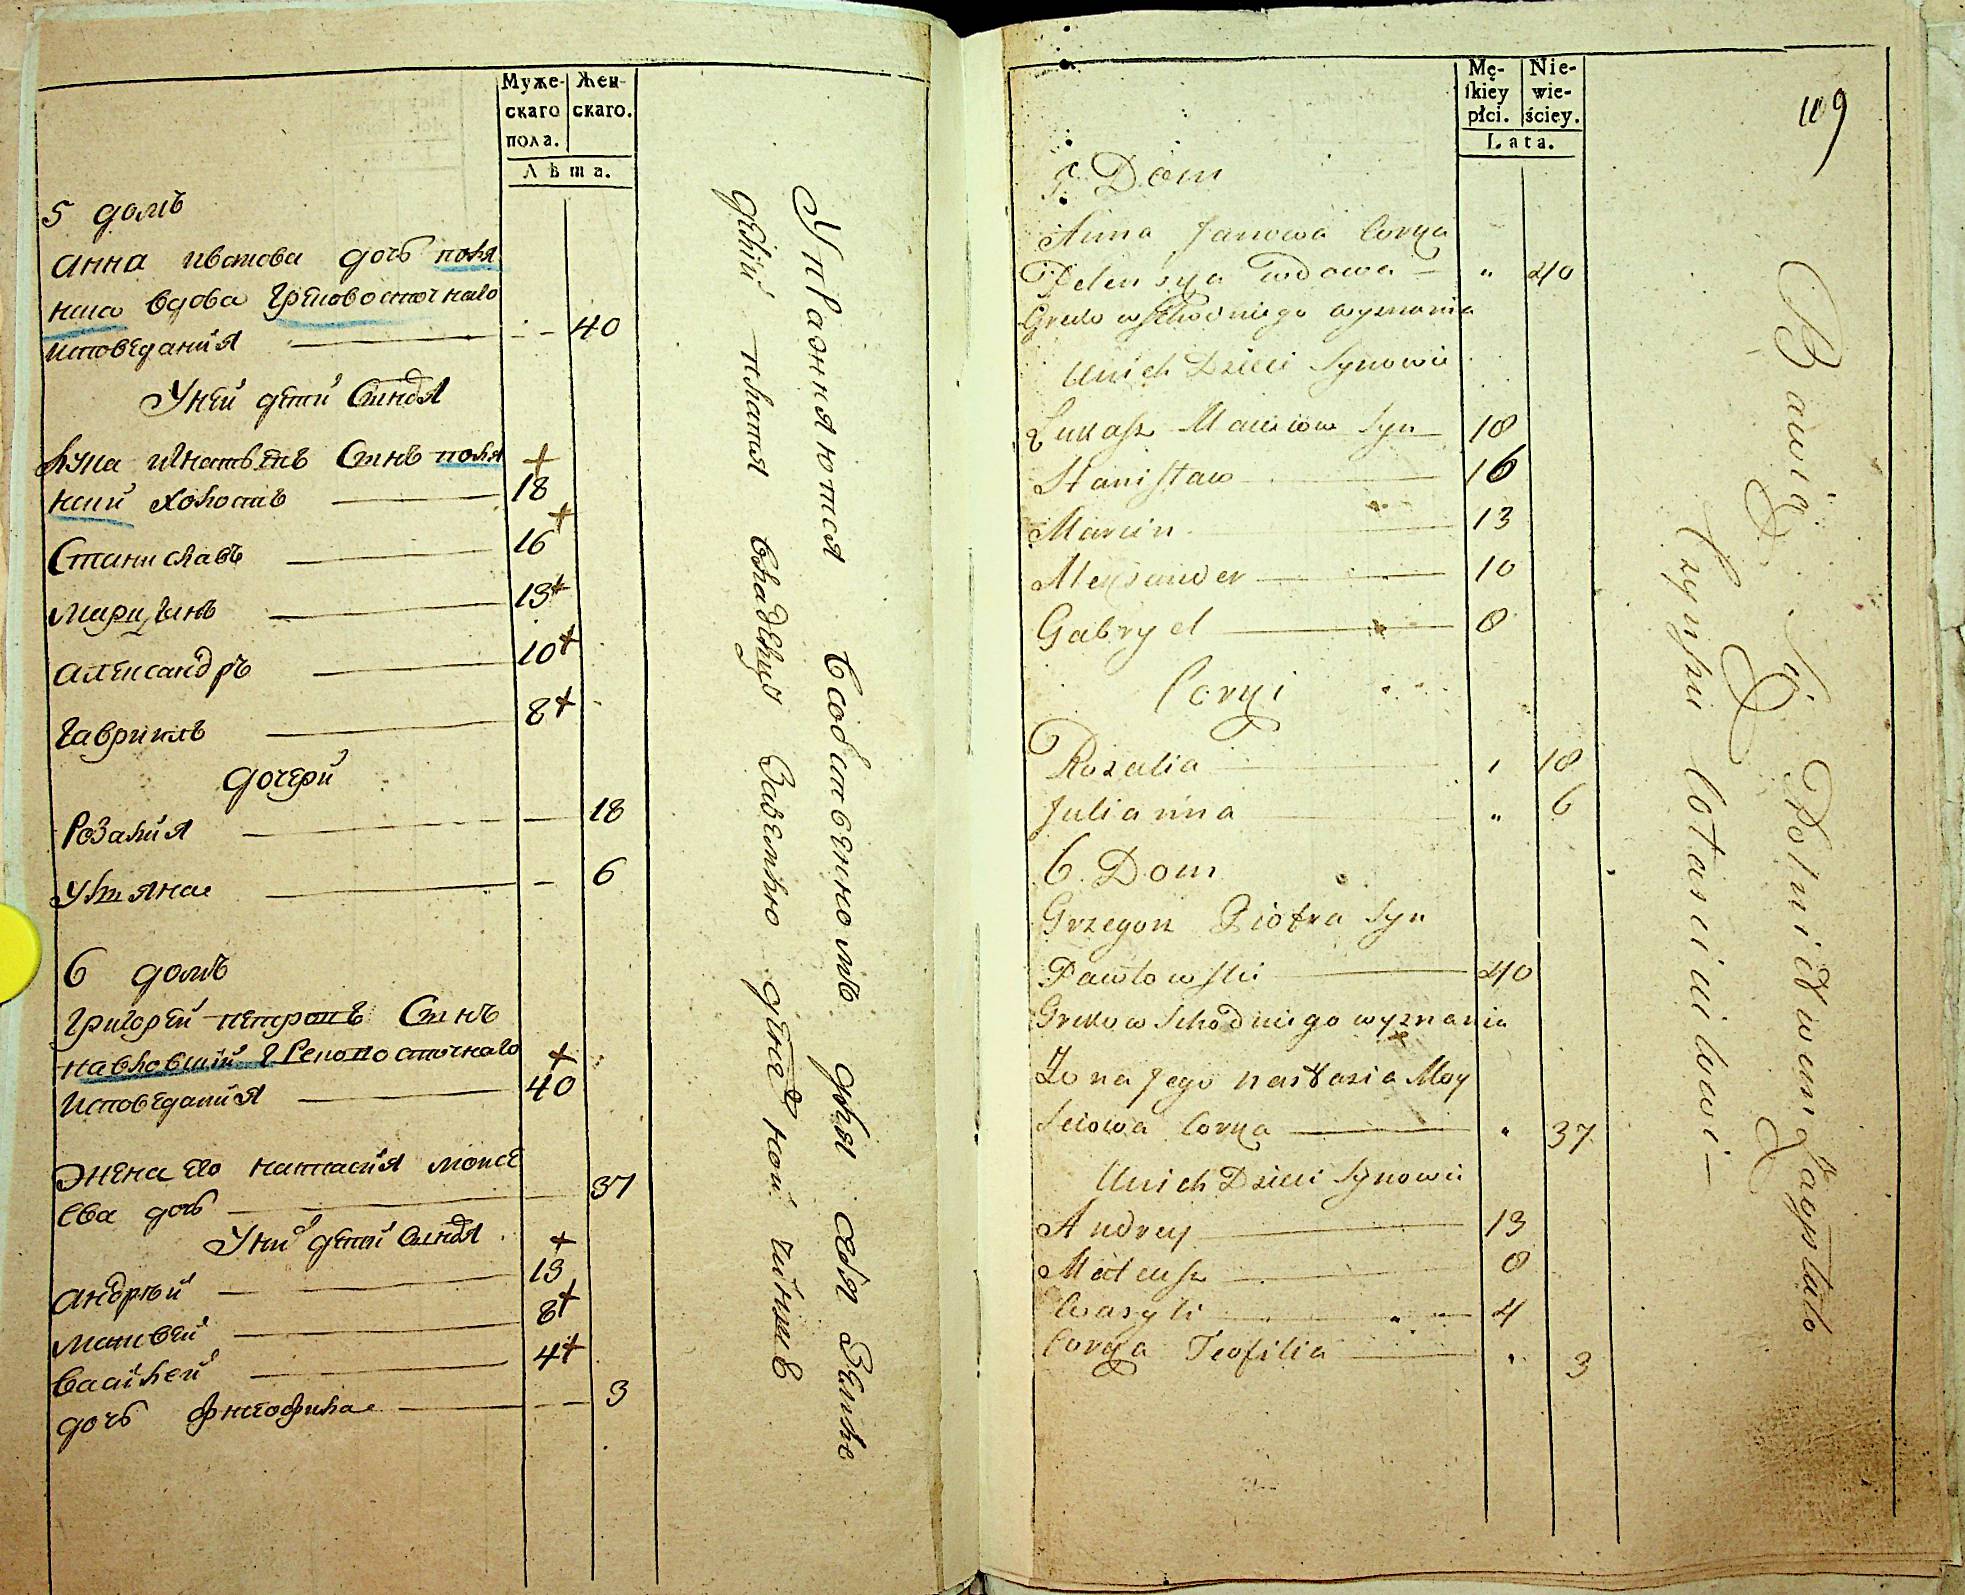 Муже-
скаго
пола.
Жен-
скаго.
Лѣта.
5 домъ
Анна Иванова дочь Поля
нша вдова Грековосточнаго
исповеданія — — 40
У ней дети Сыновья
Лука Игнатьевъ Сынъ Поля
ншй холостъ — 18
Станиславъ — 16
Марцинъ — 13
Александръ — 10
Гавриилъ — 8
дочери
Розалия — — 18
Ульяна — — 6
6 домъ
Григорей Петровъ Сынъ
Павловшй Грековосточнаго
исповеданія — 40
Жена его Настасия Моисе
ева дочь — — 37
У них дети Сыновья
Андрей — 13
Матвей — 8
Василей — 4
дочь Феофила — — 3
Упражняются Собственномъ для себя Земле
делии платя владельцу Земли
Mę-
ſkiey
płci.
Nie-
wie-
ściey.
Lata.
109
5. Dom
Anna Janowa Corka
wdowa — „ 40
Greko wschodniego wyznania
U nich Dzieci Synowie
Łukasz Syn — 18
Stanisław — 16
Marcin — 13
Alexander — 10
Gabryel — 8
Corki
Rozalia — „ 18
Julianna — „ 6
6. Dom
Grzegorz Piotra Syn
Pawłowski — 40
Greko wschodniego wyznania
Żona Jego Nastazia Moy
seiowa Corka — „ 37
U nich Dzieci Synowie
Andrey — 13
Mateusz — 8
Wasyli — 4
Corka Teofilia — „ 3
Bawią Się Rolnictwem